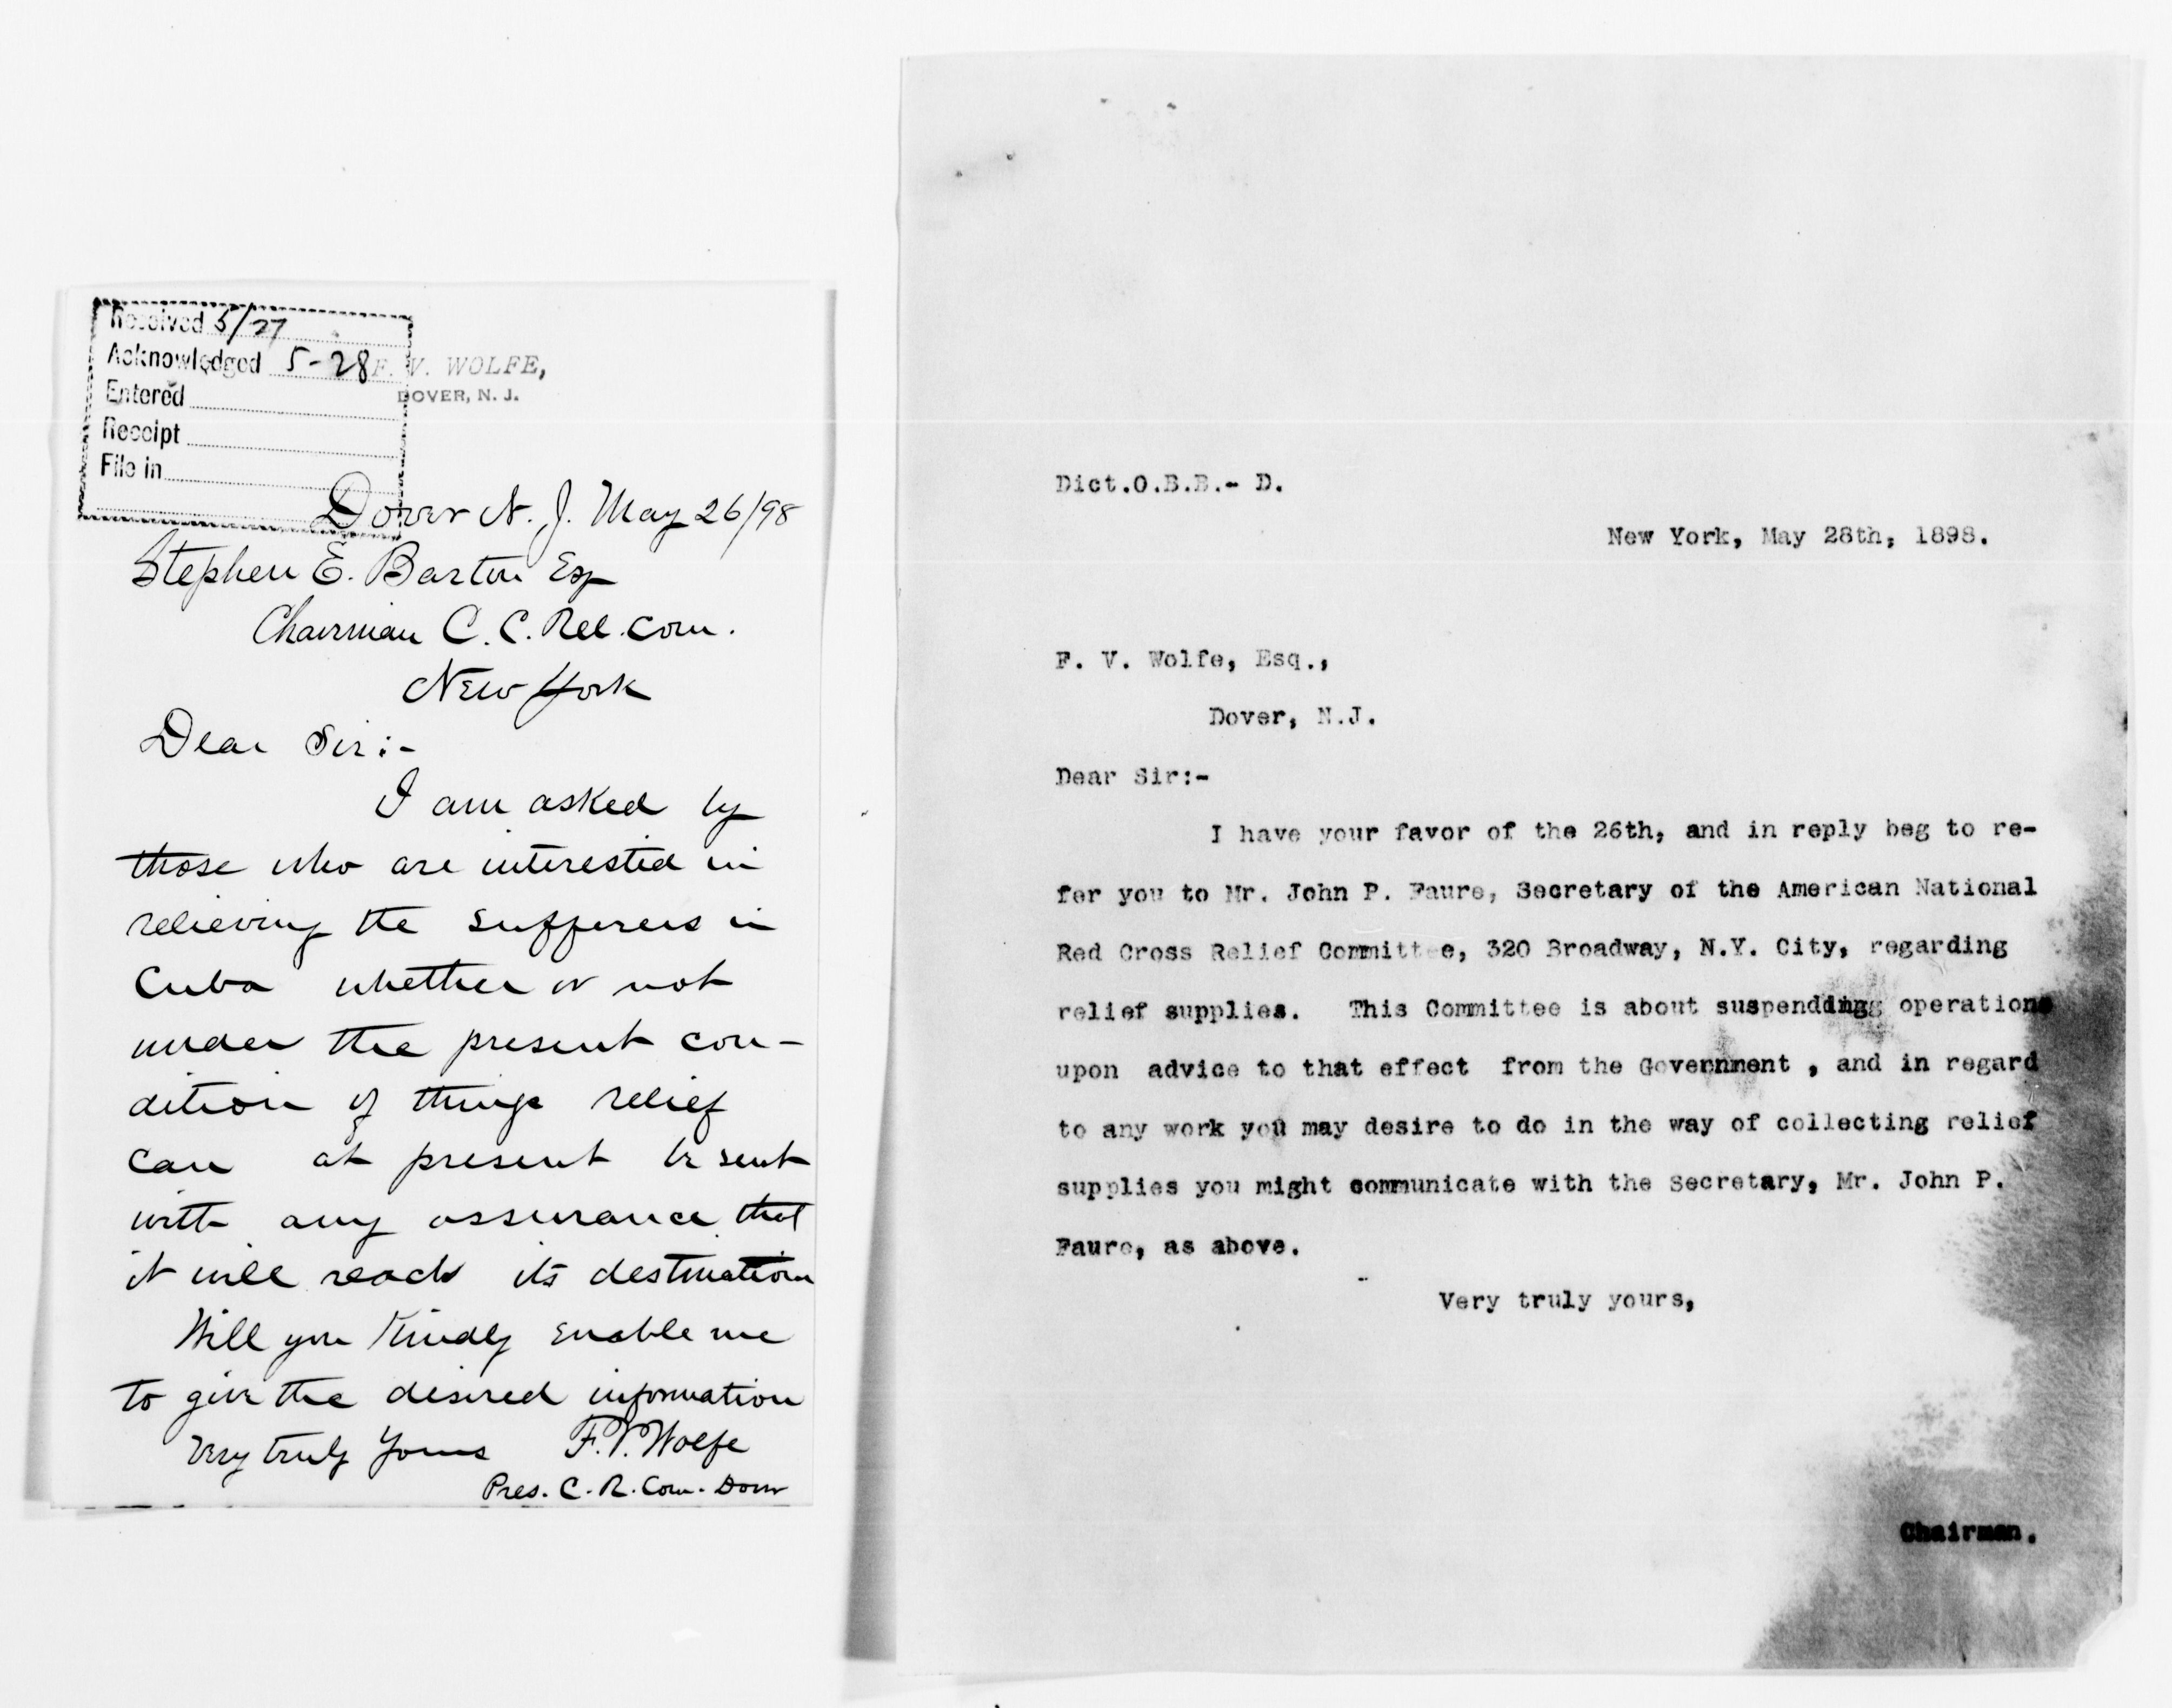 Received 5/27
Acknowledged 5-28
Entered
Receipt
File in
F. V. WOLFE,
DOVER, N. J.
Dover N. J. May 26/98
Stephen E. Barton Esq
Chairman C. C. Rel. Com.
New York
Dear Sir:-
I am asked by
those who are interested in
relieving the sufferers in
Cuba whether or not
under the present con-
dition of things relief
can at present be sent
with any assurance that
it will reach its destination
Will you kindly enable me
to give the desired information
Very truly yours F. V. Wolfe
Pres. C. R. Com. Dover
Dict.O.B.B.- D.
New York, May 28th, 1898.
F. V. Wolfe, Esq.,
Dover, N.J.
Dear Sir:-
I have your favor of the 26th, and in reply beg to re-
fer you to Mr. John P. Faure, Secretary of the American National
Red Cross Relief Committee, 320 Broadway, N.Y. City, regarding
relief supplies. This Committee is about suspending operations
upon advice to that effect from the Government , and in regard
to any work you may desire to do in the way of collecting relief
supplies you might communicate with the Secretary, Mr. John P.
Faure, as above.
Very truly yours,
Chairman.